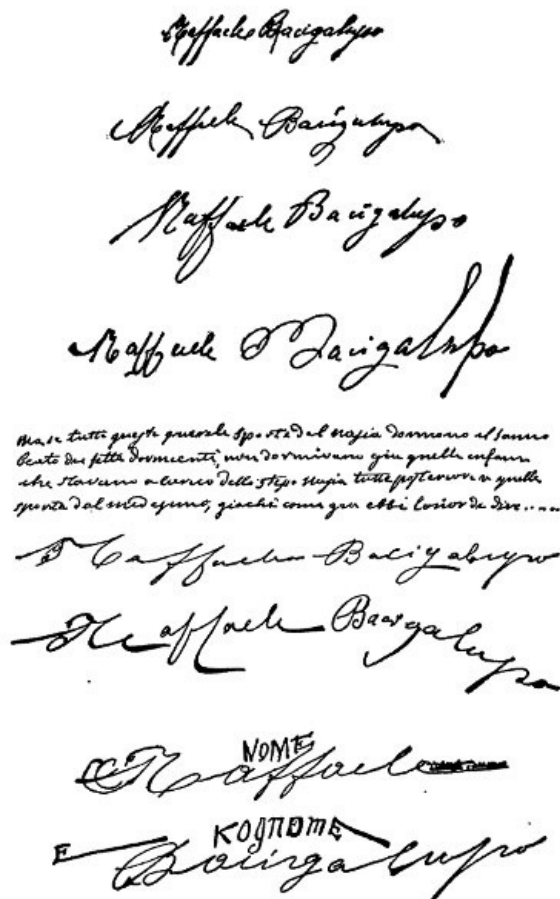 Raffaele Bacigalupo
Raffaele Bacigalupo
Raffaele Bacigalupo
Raffaele Bacigalupo
ma se tutte queste querele sporte dal Maria dormono il sonno
beato dei sette dormienti, non dormivano già quelle
che stavano a carico dello stesso tutte posteriori a quelle
sporte dal medesimo, giacchè come già ebbi l'onor di dire.....
Raffaele Bacigalupo
Raffaele Bacigalupo
NOME
Raffaele
KOGNOME
E Bacigalupo